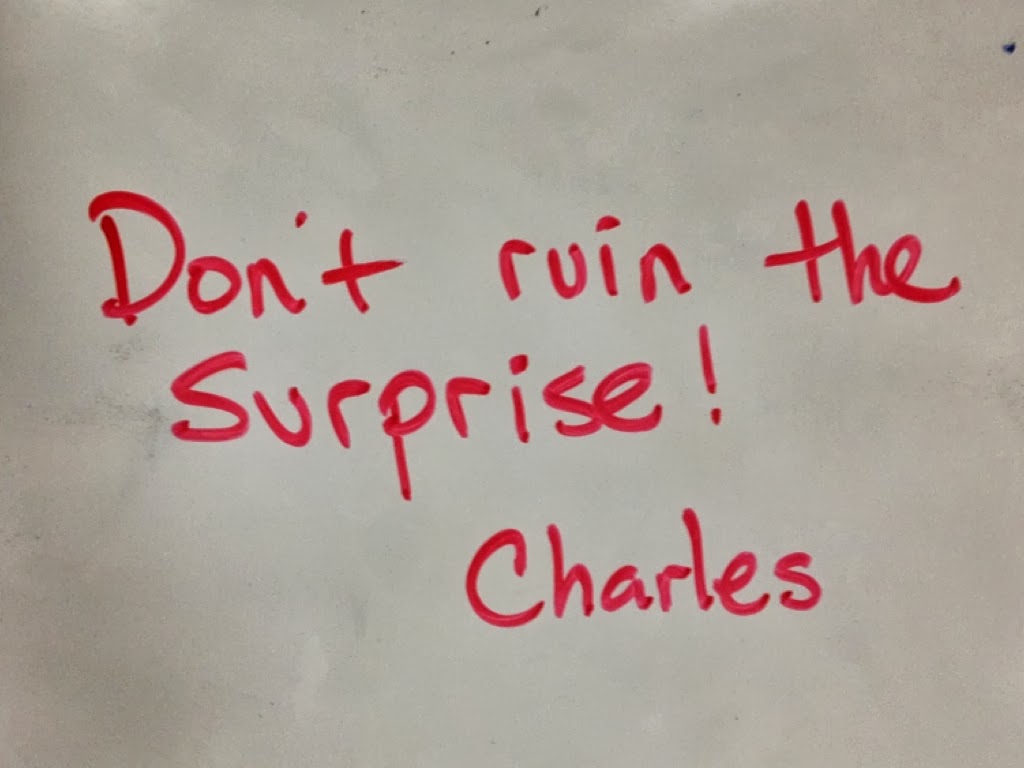 Don't ruin the
Surprise!
Charles